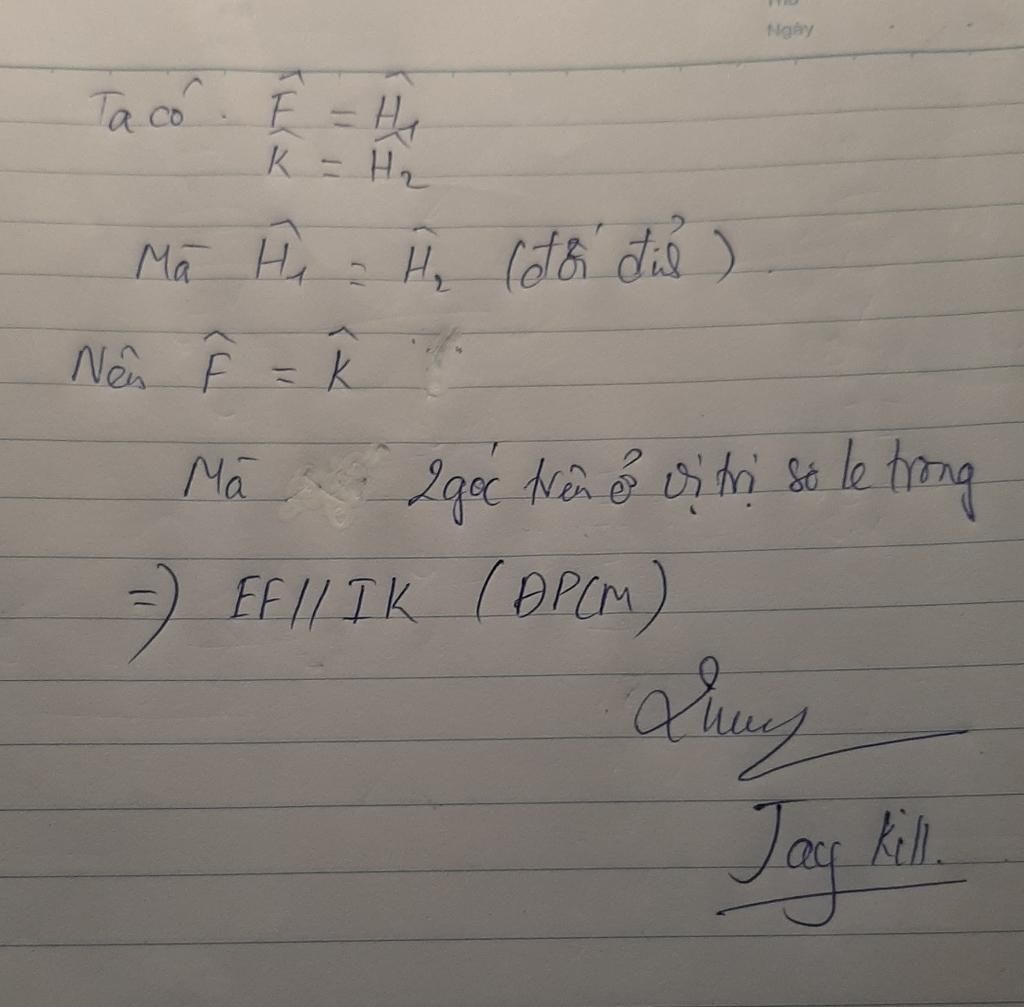 Thứ
Ngày
Ta có. F̂ = Ĥ₁
K̂ = Ĥ₂
Mà Ĥ₁ = Ĥ₂ (đối đỉnh).
Nên F̂ = K̂
Mà 2 góc trên ở vị trị so le trong
=) EF // IK (ĐPCM)
Jay Kill.